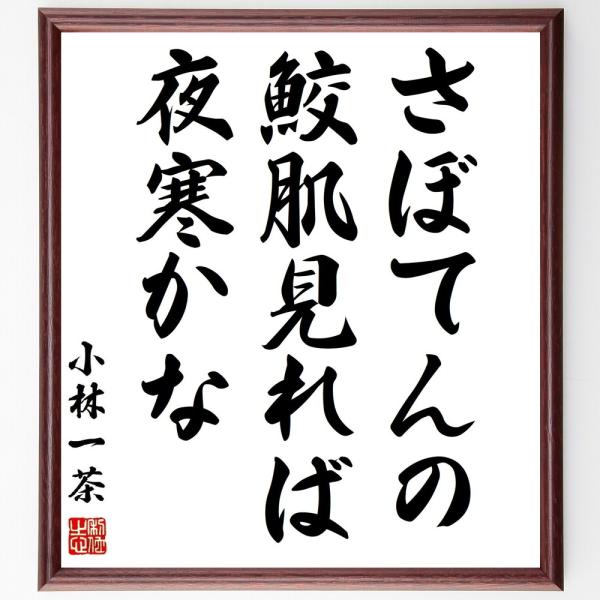 さぼてんの
鮫肌見れば
夜寒かな
小林一茶